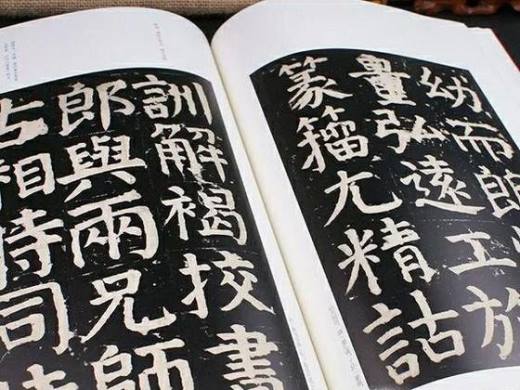 幼而朗
量弘遠工於
篆籀尤精詁
訓解褐挍書
郎與兩兄師
古相時同